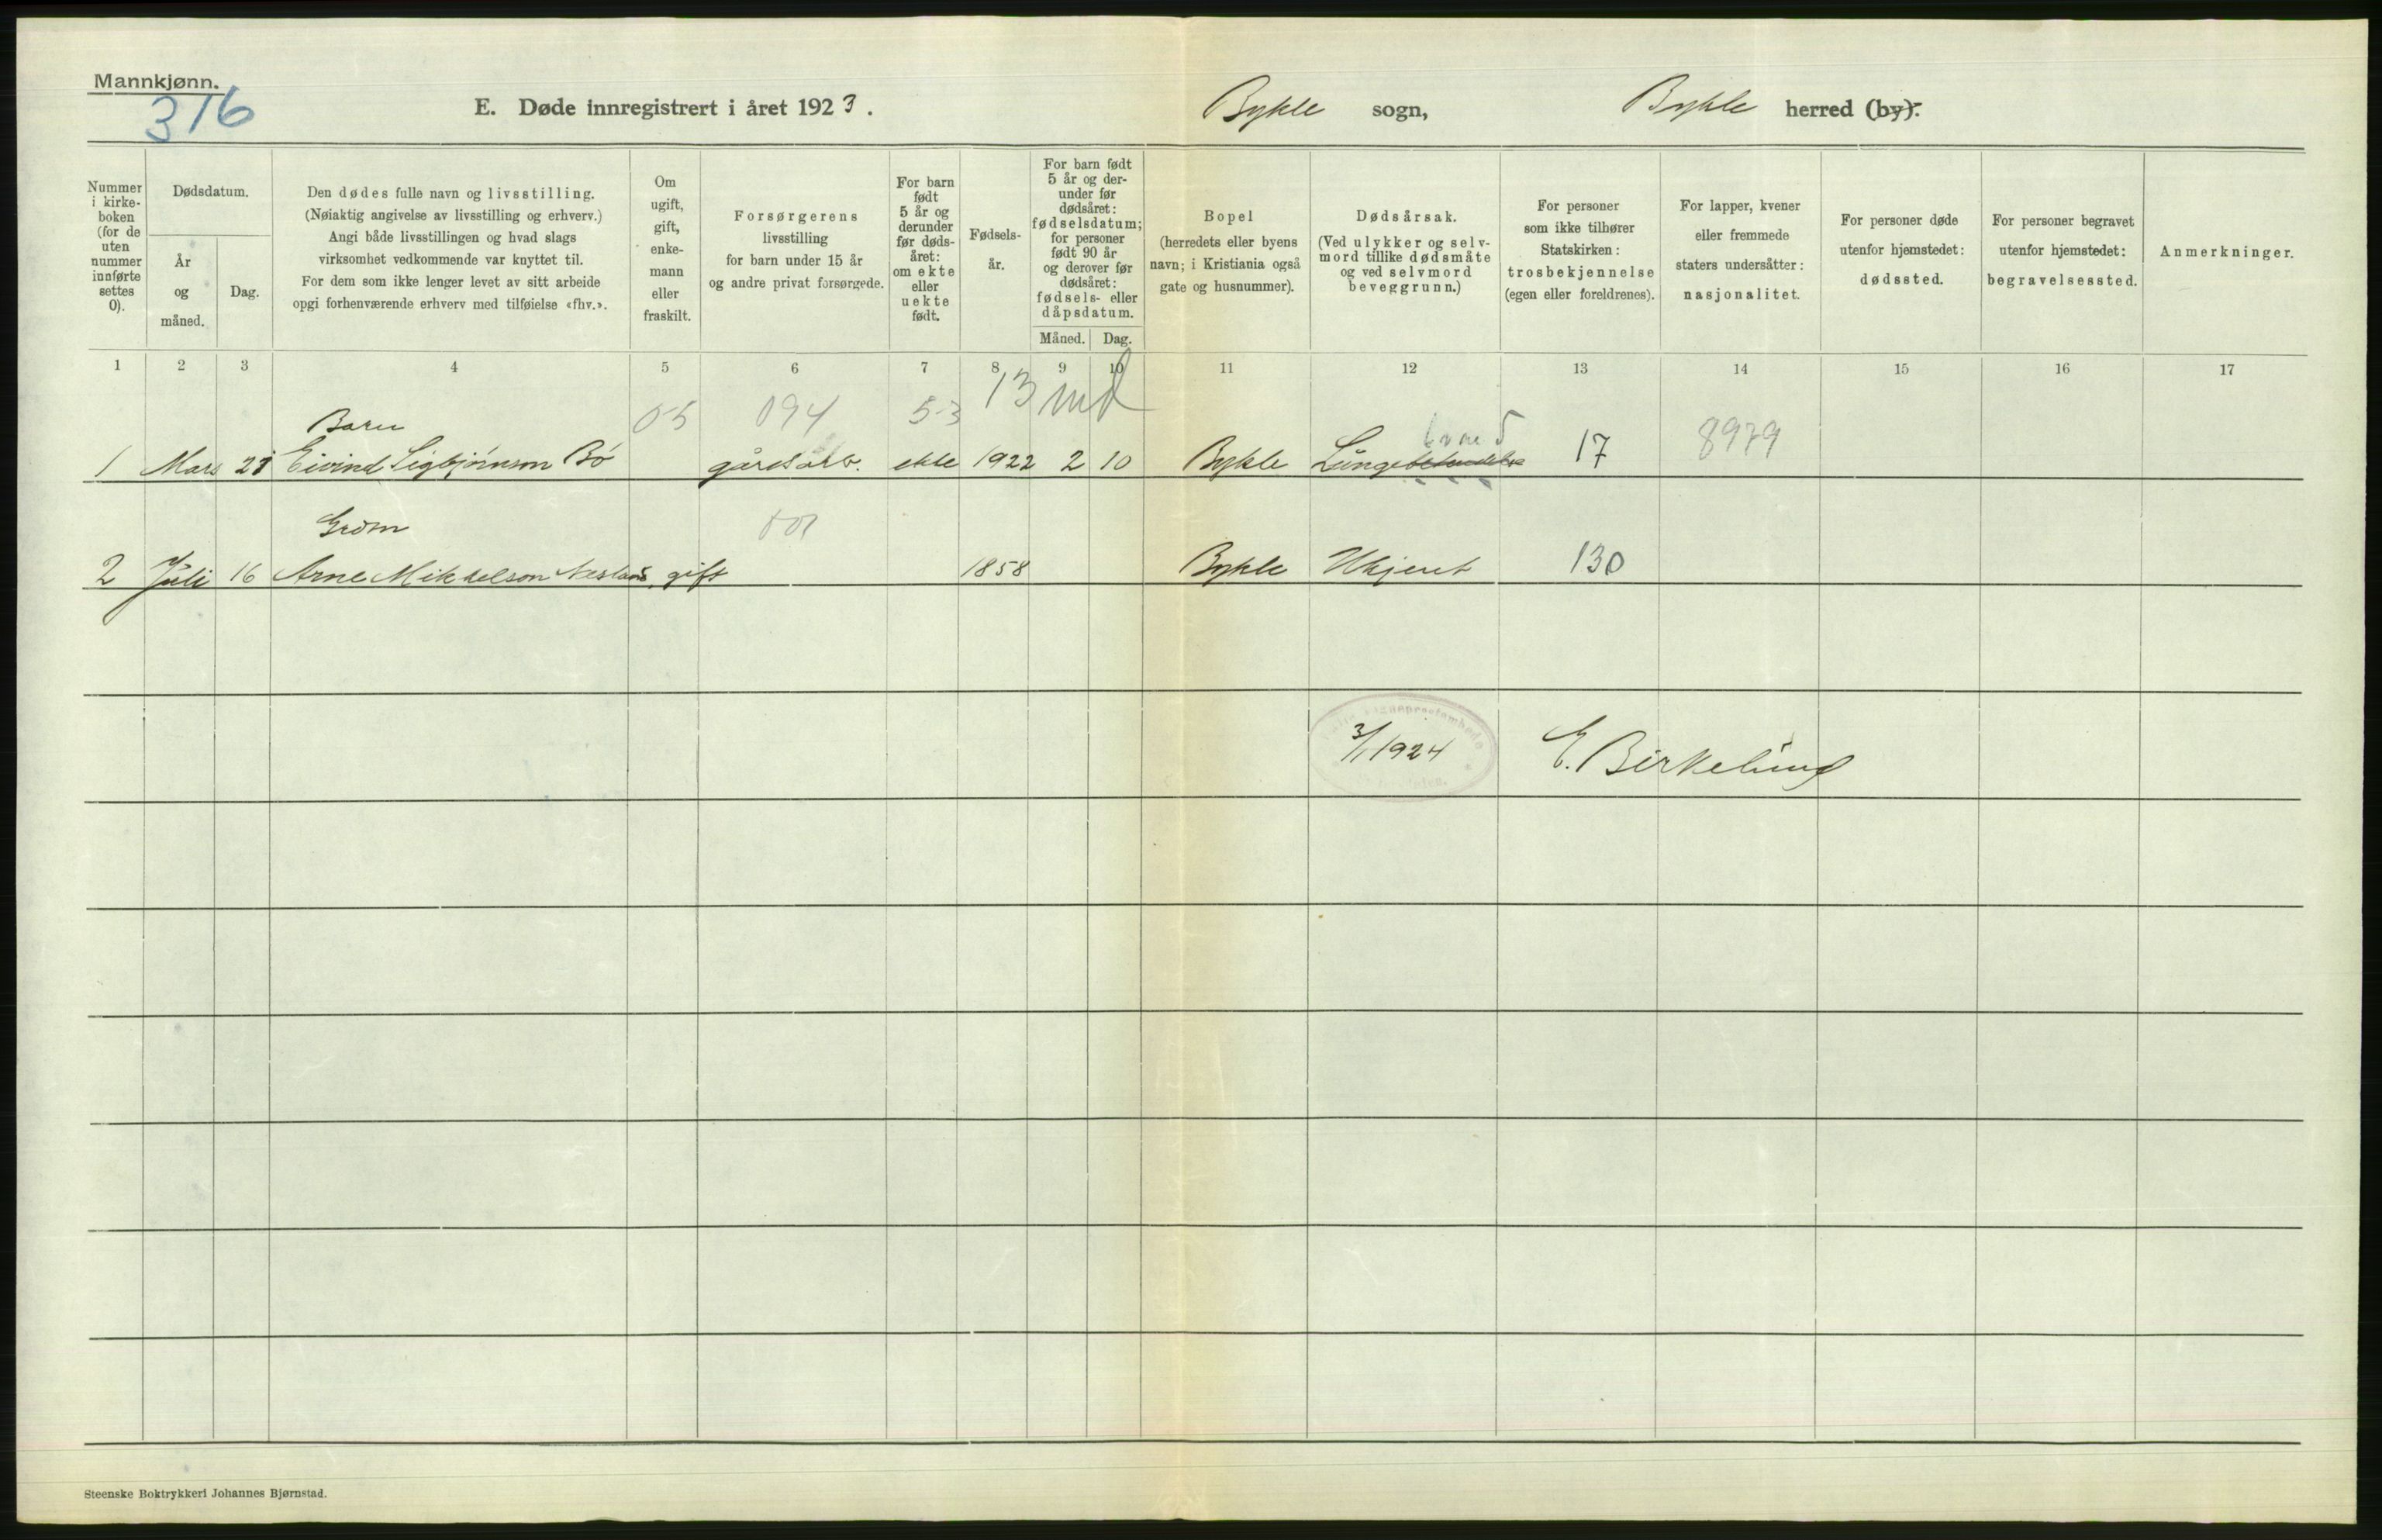 Mannkjønn.
316
E. Døde innregistrert i året 1923.
Bykle sogn,
Bykle herred (by).
Nummer i kirke-boken (for de uten nummer innførte settes 0).
Dødsdatum.
År og måned.
Dag.
Den dødes fulle navn og livsstilling.
(Nøiaktig angivelse av livsstilling og erhverv.)
Angi både livsstillingen og hvad slags
virksomhet vedkommende var knyttet til.
For dem som ikke lenger levet av sitt arbeide
opgi forhenværende erhverv med tilføielse «fhv.».
Om ugift, gift, enke-mann eller fraskilt.
Forsørgerens
livsstilling
for barn under 15 år
og andre privat forsørgede.
For barn født 5 år og derunder før døds-året: om ekte eller uekte født.
Fødsels-år.
For barn født 5 år og der-under før dødsåret: fødselsdatum; for personer født 90 år og derover før dødsåret: fødsels- eller dåpsdatum.
Måned. Dag.
Bopel
(herredets eller byens
navn; i Kristiania også
gate og husnummer).
Dødsårsak.
(Ved ulykker og selv-
mord tillike dødsmåte
og ved selvmord
beveggrunn.)
For personer
som ikke tilhører
Statskirken:
trosbekjennelse
(egen eller foreldrenes).
For lapper, kvener
eller fremmede
staters undersåtter:
nasjonalitet.
For personer døde
utenfor hjemstedet:
dødssted.
For personer begravet
utenfor hjemstedet:
begravelsessted.
Anmerkninger.
1 2 3 4 5 6 7 8 9 10 11 12 13 14 15 16 17
13 md
Barn 05 094 5-3
1 Mars 21 Eivind Sigbjørnson Bö gårdsarb. ekte 1922 2 10 Bykle Lunge 17 8979
2 Juli 16 Arne Mikkelson gift 1858 Bykle Ukjent 130
3/1 1924 E. Birkelund
Steenske Boktrykkeri Johannes Bjørnstad.